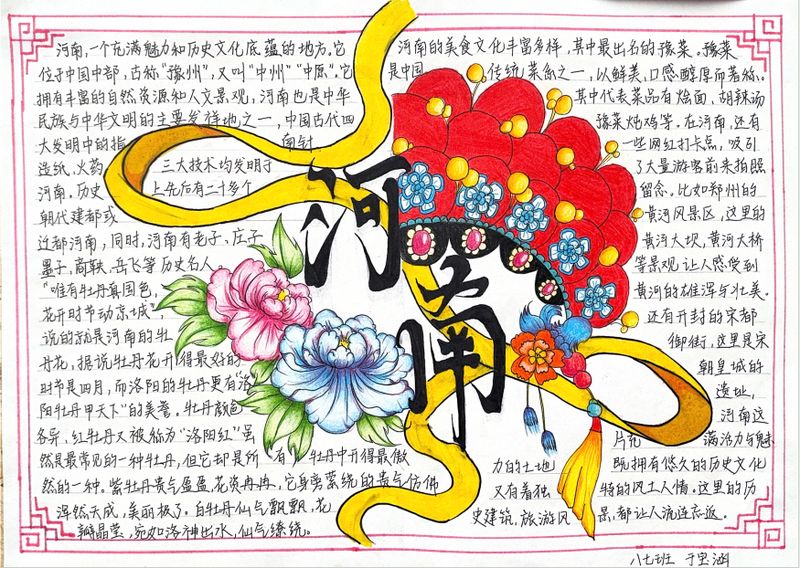 河南，一个充满魅力和历史文化底蕴的地方。它
位于中国中部，古称"豫州"，又叫"中州""中原"。它
拥有丰富的自然资源和人文景观，河南也是中华
民族与中华文明的主要发祥地之一，中国古代四
大发明中的指南针
造纸，火药三大技术均发明于
河南。历史上先后有二十多个
朝代建都或
迁都河南，同时，河南有老子，庄子
墨子，商鞅，岳飞等历史名人
"唯有牡丹真国色，
花开时节动京城"，
说的就是河南的牡
丹花，据说牡丹花开得最好的
时节是四月，而洛阳的牡丹更有"洛
阳牡丹甲天下"的美誉。牡丹颜色
各异，红牡丹又被称为"洛阳红"虽
然是最常见的一种牡丹，但它却是所有牡丹中开得最傲
然的一种。紫牡丹贵气盈盈，花资冉冉，它身旁萦绕的贵气仿佛
浑然天成，美丽极了。白牡丹仙气飘飘，花
瓣晶莹，宛如洛神出水，仙气缭绕。
河南
河南的美食文化丰富多样，其中最出名的豫菜。豫菜
是中国传统菜系之一，以鲜美，口感醇厚而著称。
其中代表菜品有烩面，胡辣汤
豫菜炖鸡等。在河南，还有
一些网红打卡点，吸引
了大量游客前来拍照
留念。比如郑州的
黄河风景区，这里的
黄河大坝，黄河大桥
等景观让人感受到
黄河的雄浑与壮美。
还有开封的宋都
御街，这里是宋
朝皇城的
遗址，
河南这
片充满活力与魅
力的土地既拥有悠久的历史文化
又有着独特的风土人情。这里的历
史建筑，旅游风景，都让人流连忘返。
八七班 于宝涵